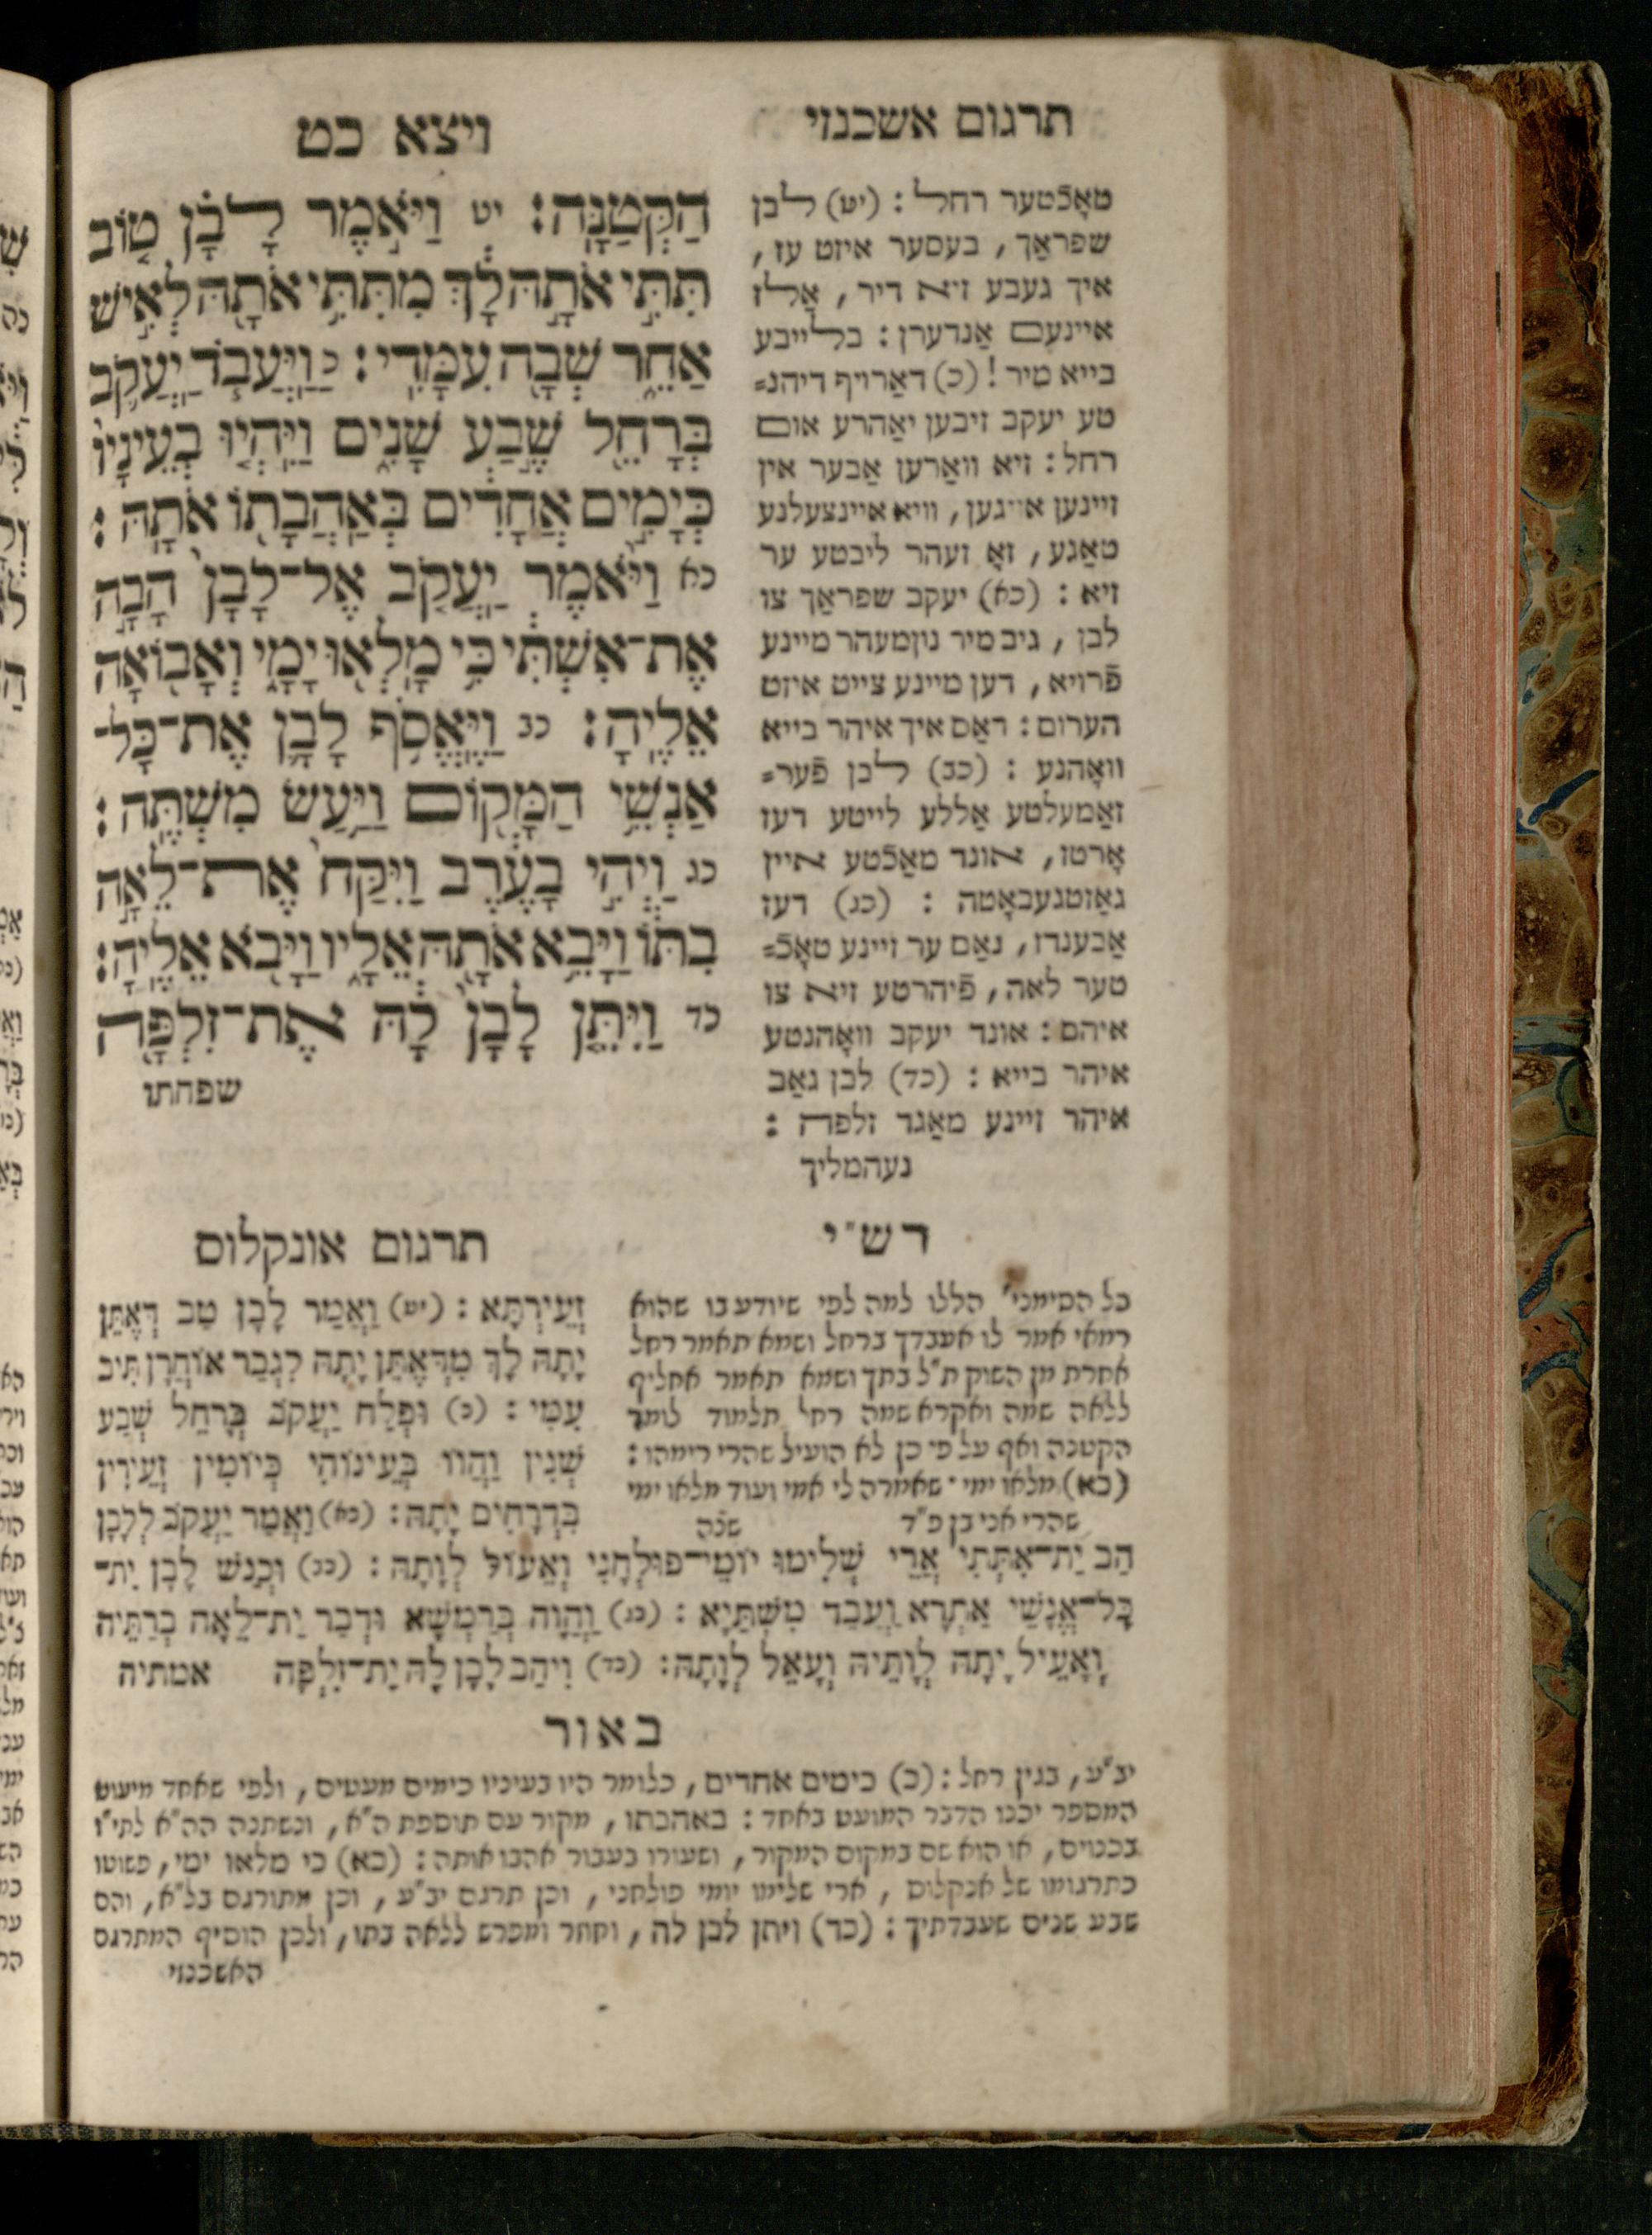 תרגום אשכנזי
ויצא כט
טאָכֿטער רחל : (יט) לבן
שפראַך , בעסער איזט עז ,
איך געבע זיא דיר , אַלז
איינעם אַנדערן : בלייבע
בייא מיר ! (כ) דאַרויף דיהנ⸗
טע יעקב זיבען יאַהרע אום
רחל : זיא וואַרען אַבער אין
זיינען אייגען , וויא איינצעלנע
טאַגע , זאָ זעהר ליבטע ער
זיא : (כא) יעקב שפראַך צו
לבן , גיב מיר נונמעהר מיינע
פֿרויא , דען מיינע צייט איזט
הערום : דאַס איך איהר בייא
וואָהנע : (כב) לבן פֿער⸗
זאַמעלטע אַללע לייטע דעז
אָרטז , אונד מאַכֿטע איין
גאַזטגעבאָטה : (כג) דעז
אַבענדז , נאַם ער זיינע טאָכֿ⸗
טער לאה , פֿיהרטע זיא צו
איהם : אונד יעקב וואָהנטע
איהר בייא : (כד) לבן גאַב
איהר זיינע מאַגד זלפה :
נעהמליך
הַקְּטַנָּֽה׃ יט וַיֹּ֣אמֶר לָבָ֗ן ט֚וֹב
תִּתִּ֣י אֹתָ֣הּ לָ֔ךְ מִתִּתִּ֥י אֹתָ֖הּ לְאִ֣ישׁ
אַחֵ֑ר שְׁבָ֖ה עִמָּדִֽי׃ כ וַיַּעֲבֹ֧ד יַעֲקֹ֛ב
בְּרָחֵ֖ל שֶׁ֣בַע שָׁנִ֑ים וַיִּהְי֤וּ בְעֵינָיו֙
כְּיָמִ֣ים אֲחָדִ֔ים בְּאַהֲבָת֖וֹ אֹתָֽהּ׃
כא וַיֹּ֨אמֶר יַעֲקֹ֤ב אֶל־לָבָן֙ הָבָ֣ה
אֶת־אִשְׁתִּ֔י כִּ֥י מָלְא֖וּ יָמָ֑י וְאָב֖וֹאָה
אֵלֶֽיהָ׃ כב וַיֶּאֱסֹ֥ף לָבָ֛ן אֶת־כָּל־
אַנְשֵׁ֥י הַמָּק֖וֹם וַיַּ֥עַשׂ מִשְׁתֶּֽה׃
כג וַיְהִ֣י בָעֶ֔רֶב וַיִּקַּח֙ אֶת־לֵאָ֣ה
בִתּ֔וֹ וַיָּבֵ֥א אֹתָ֖הּ אֵלָ֑יו וַיָּבֹ֖א אֵלֶֽיהָ׃
כד וַיִּתֵּ֤ן לָבָן֙ לָ֔הּ אֶת־זִלְפָּ֖ה
שפחתו
רש״י
כל הסימני׳ הללו למה לפי שיודע בו שהוא
רמאי אמר לו אעבדך ברחל ושמא תאמר רחל
אחרת מן השוק ת״ל בתך ושמא תאמר אחליף
ללאה שמה ואקרא שמה רחל תלמוד לומר
הקטנה ואף על פי כן לא הועיל שהרי רימהו :
(כא) מלאו ימי . שאמרה לי אמי ועוד מלאו ימי
שהרי אני בן פ״ד שנה
תרגום אונקלוס
זְעֵירְתָּא : (יט) וַאֲמַר לָבָן טַב דְּאֶתֵּן
יָתָהּ לָךְ מִדְּאֶתֵּן יָתָהּ לִגְבַר אוֹחֳרָן תִּיב
עִמִּי : (כ) וּפְלַח יַעֲקֹב בְּרָחֵל שְׁבַע
שְׁנִין וַהֲווֹ בְעֵינוֹהִי כְּיוֹמִין זְעֵירִין
בִּדְרָחִים יָתָהּ : (כא) וַאֲמַר יַעֲקֹב לְלָבָן
הַב יַת־אִתְּתִי אֲרֵי שְׁלִימוּ יוֹמֵי־פוּלְחָנִי וְאֵעוֹל לְוָתָהּ : (כב) וּכְנַשׁ לָבָן יַת־
כָּל־אֱנָשֵׁי אַתְרָא וַעֲבַד מִשְׁתַּיָּא : (כג) וַהֲוָה בְרַמְשָׁא וּדְבַר יַת־לֵאָה בְרַתֵּיהּ
וְאָעֵיל יָתָהּ לְוָתֵיהּ וְעָאֵל לְוָתָהּ : (כד) וִיהַב לָבָן לָהּ יַת־זִלְפָּה אמתיה
באור
יב״ע , בגין רחל : (כ) כימים אחדים , כלומר היו בעיניו כימים מעטים , ולפי שאחד מיעוט
המספר יכנו הדבר המועט באחד : באהבתו , מקור עם תוספת ה״א , ונשתנה הה״א לתי״ו
בכנוים , או הוא שם במקום המקור , ושעורו בעבור אהבו אותה : (כא) כי מלאו ימי , פשוטו
כתרגומו של אנקלוס , ארי שלימו יומי פולחני , וכן תרגם יב״ע , וכן מתורגם בל״א , והם
שבע שנים שעבדתיך : (כד) ויתן לבן לה , וחזר ומפרש ללאה בתו , ולכן הוסיף המתרגם
האשכנזי